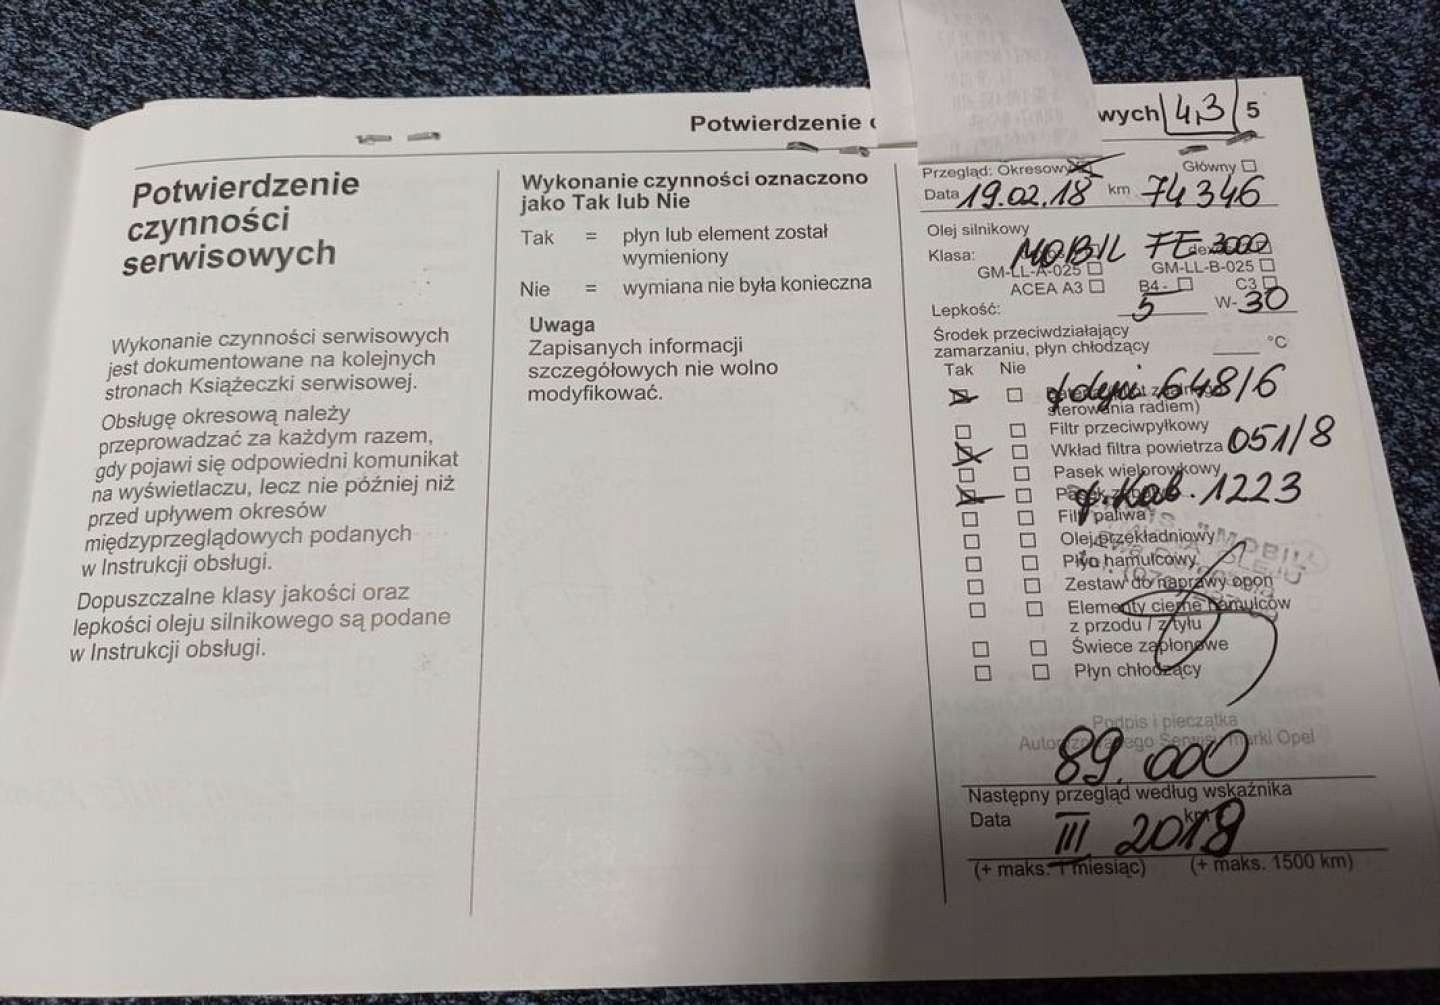 Potwierdzenie
wych 4,3 5
Potwierdzenie
czynności
serwisowych
Wykonanie czynności serwisowych
jest dokumentowane na kolejnych
stronach Książeczki serwisowej.
Obsługę okresową należy
przeprowadzać za każdym razem,
gdy pojawi się odpowiedni komunikat
na wyświetlaczu, lecz nie później niż
przed upływem okresów
międzyprzeglądowych podanych
w Instrukcji obsługi.
Dopuszczalne klasy jakości oraz
lepkości oleju silnikowego są podane
w Instrukcji obsługi.
Wykonanie czynności oznaczono
jako Tak lub Nie
Tak = płyn lub element został
wymieniony
Nie = wymiana nie była konieczna
Uwaga
Zapisanych informacji
szczegółowych nie wolno
modyfikować.
Przegląd: Okresowy Główny
Data 19.02.18 km 74346
Olej silnikowy
Klasa: MOBIL FE 3000
GM-LL-A-025 GM-LL-B-025
ACEA A3 B4 - C3
Lepkość: 5 W- 30
Środek przeciwdziałający
zamarzaniu, płyn chłodzący °C
Tak Nie
648/6
sterowania radiem)
Filtr przeciwpyłkowy
Wkład filtra powietrza 051/8
Pasek wielorowkowy
Kab. 1223
Filtr paliwa
Olej przekładniowy
Płyn hamulcowy
Zestaw do naprawy opon
Elementy cierne hamulców
z przodu / z tyłu
Świece zapłonowe
Płyn chłodzący
"MOBIL
Podpis i pieczątka
Autoryzowanego Serwisu marki Opel
89.000
Następny przegląd według wskaźnika
Data km
III 2019
(+ maks. 1 miesiąc) (+ maks. 1500 km)